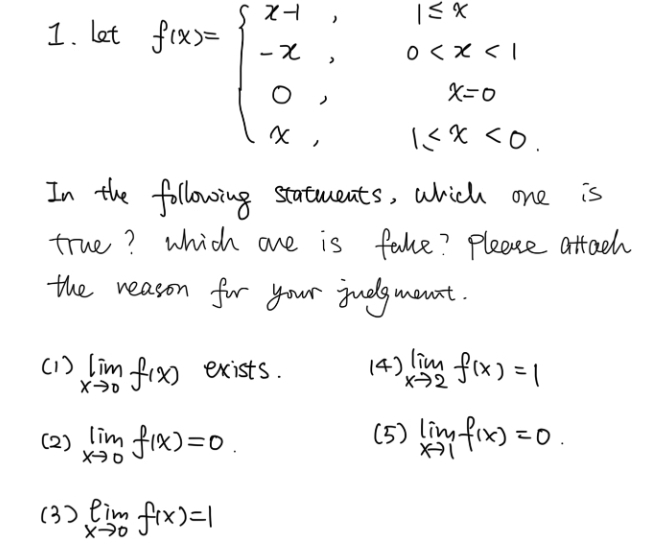 1. Let f(x)= { x-1 , 1 ≤ x
-x , 0 < x < 1
0 , x=0
x , 1 ≤ x < 0.
In the following statments, which one is
true? which one is fake? Please attach
the reason for your judgment.
(1) lim x→0 f(x) exists. (4) lim x→2 f(x) = 1
(2) lim x→0 f(x)=0. (5) lim x→1 f(x) = 0.
(3) lim x→0 f(x)=1